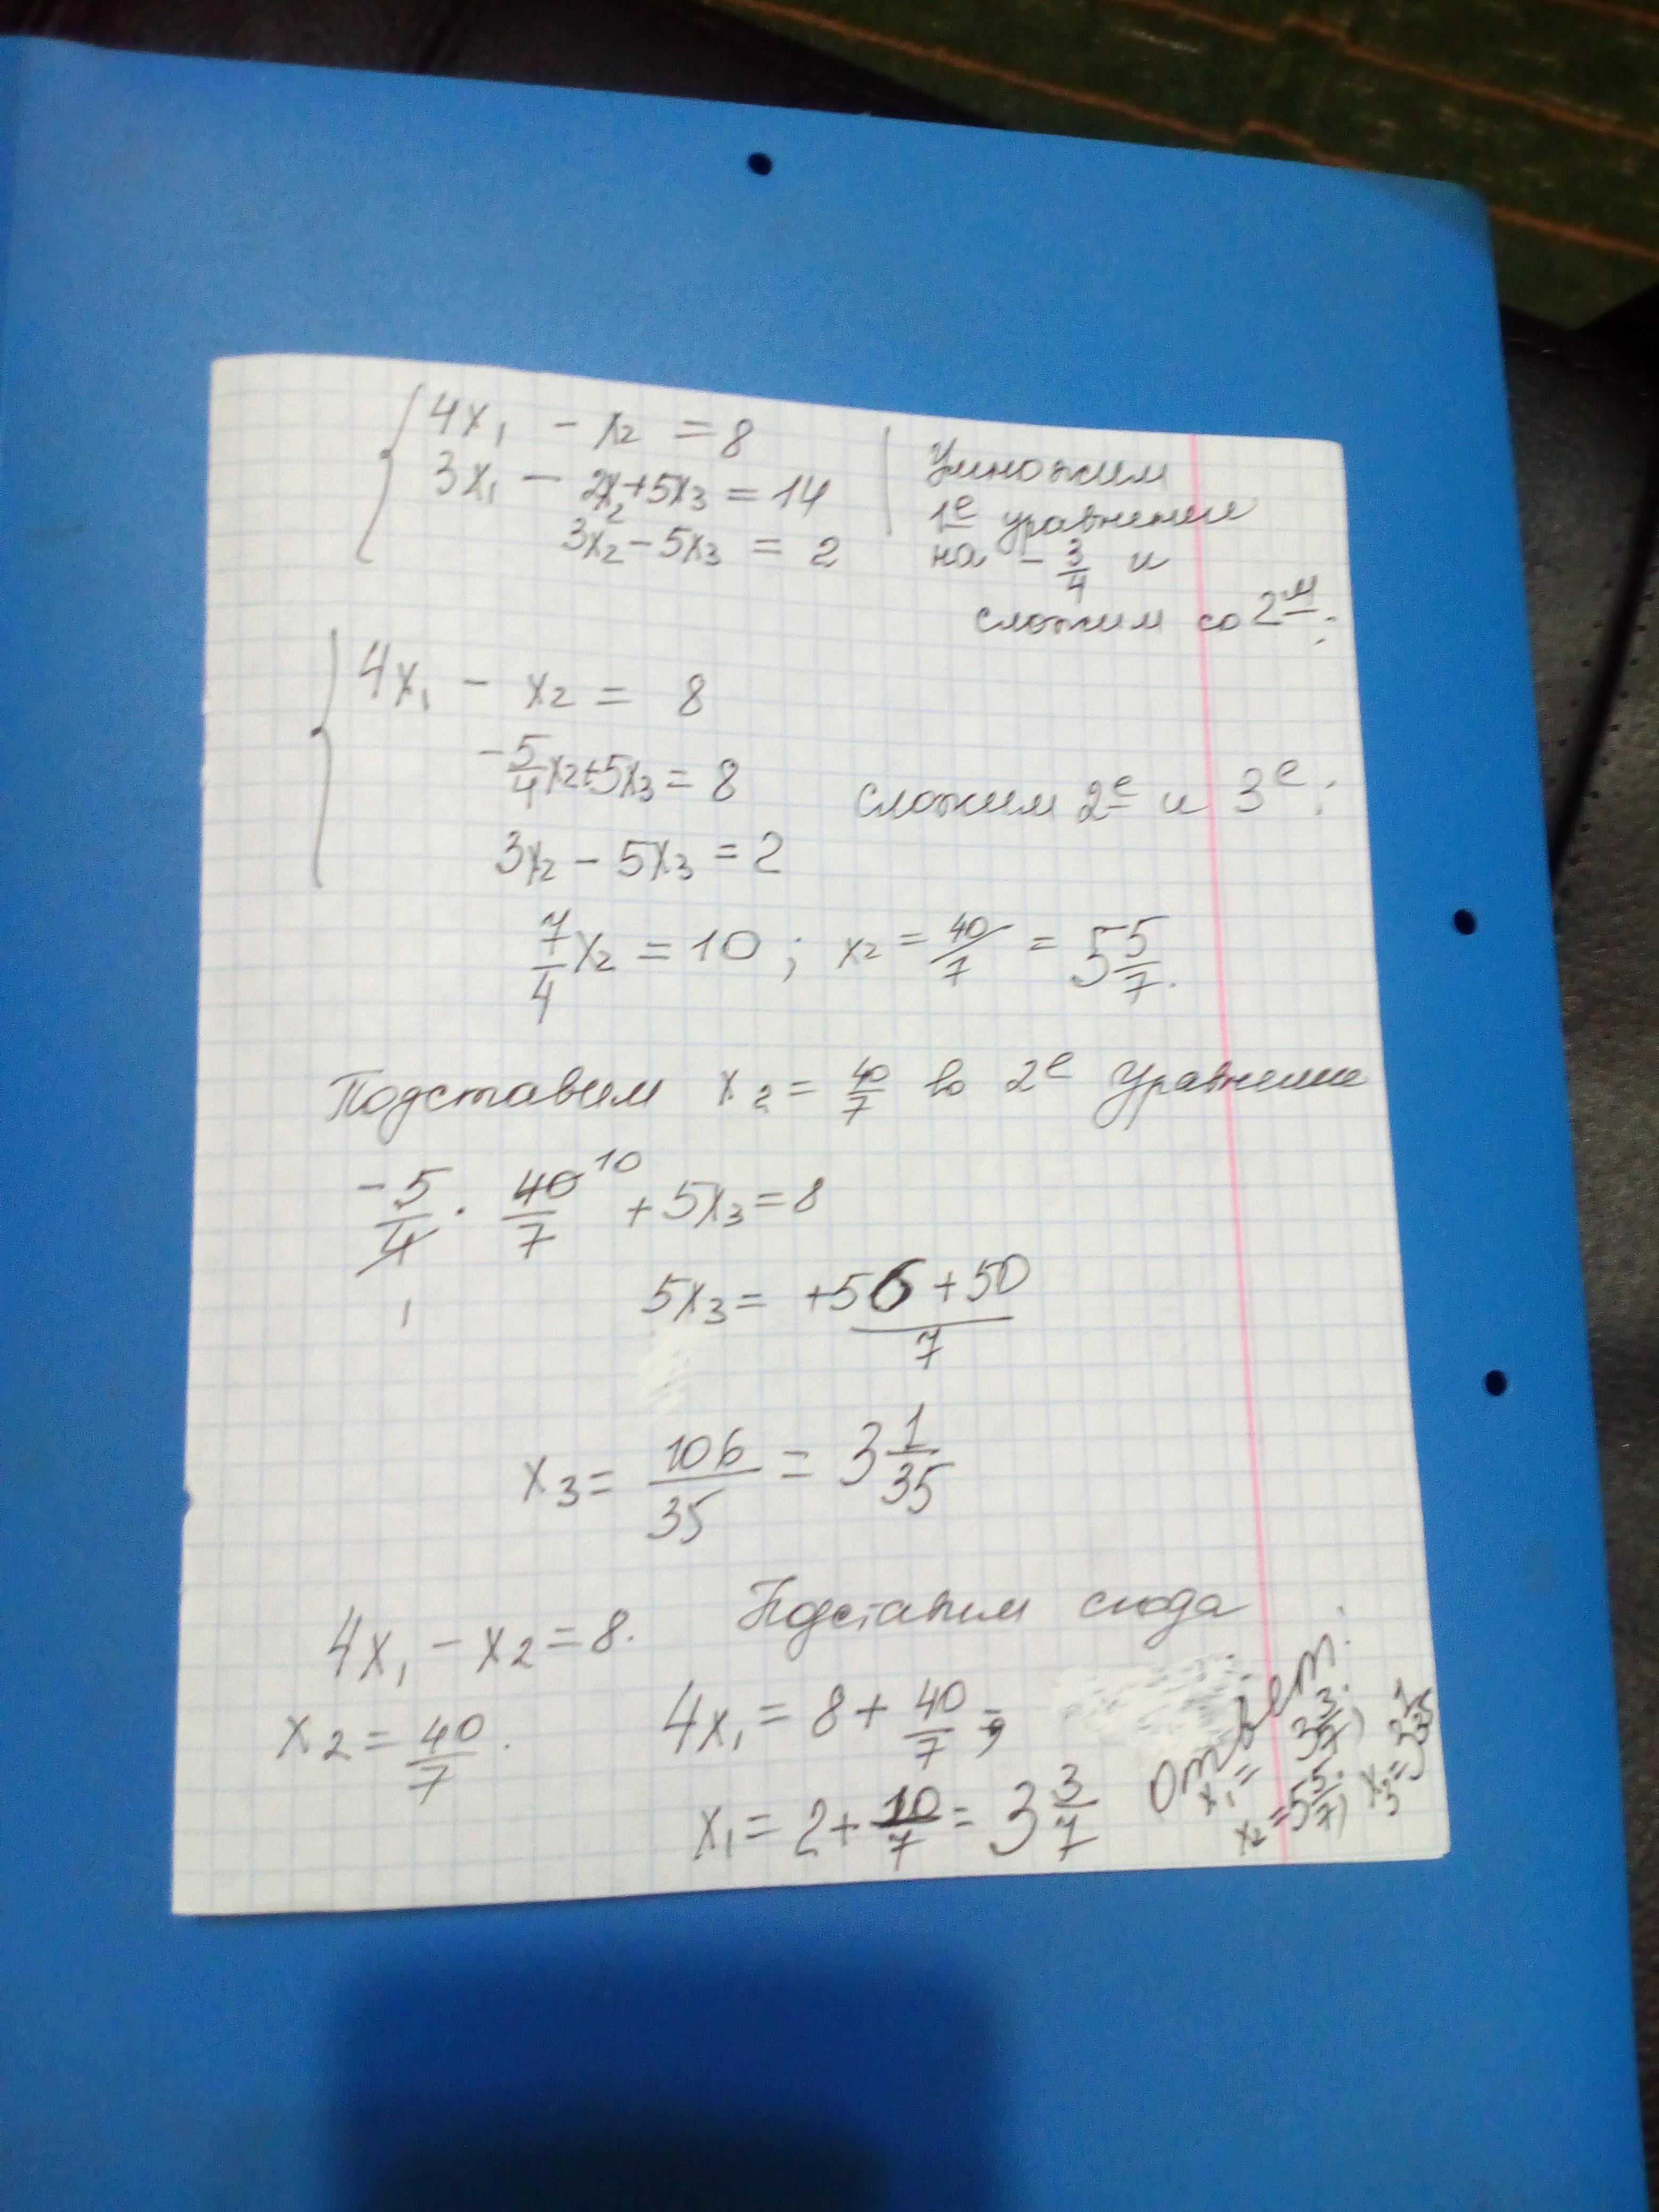 4x₁ - x₂ = 8
3x₁ - 2x₂+5x₃ = 14
3x₂ - 5x₃ = 2
Умножим
1е уравнение
на - 3/4 и
сложим со 2м:
4x₁ - x₂ = 8
-5/4x₂+5x₃ = 8
3x₂ - 5x₃ = 2
сложим 2е и 3е:
7/4x₂ = 10 ; x₂ = 40/7 = 5 5/7.
Подставим x₂ = 40/7 во 2е уравнение
-5/4 · 40/7 10 + 5x₃ = 8
1
5x₃ = +56+50/7
x₃ = 106/35 = 3 1/35
4x₁ - x₂ = 8. Подставим сюда
x₂ = 40/7.
4x₁ = 8 + 40/7 ;
x₁ = 2 + 10/7 = 3 3/7
Ответ:
x₁ = 3 3/7;
x₂ = 5 5/7; x₃ = 3 1/35